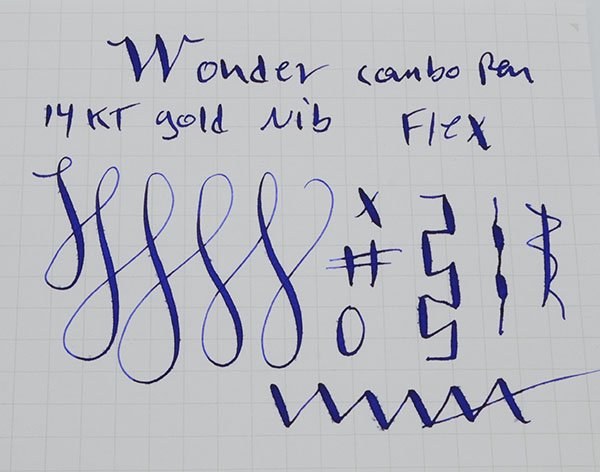 Wonder combo Pen
14 KT gold Nib Flex
X
#
O